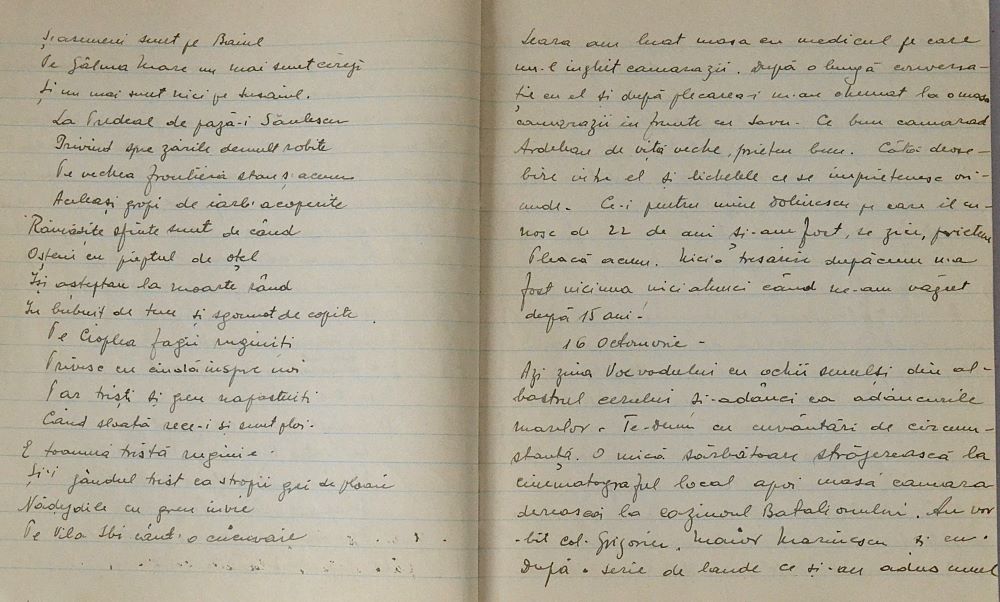 Ș-asemeni sunt pe Baiul
Pe Gâlma Mare nu mai sunt cireși
Și nu mai sunt nici pe Susaiul.
La Predeal de pază-i Săulescu
Privind spre zările demult robite
Pe vechea frontieră stau ș-acum
Aceleași gropi de iarb-acoperite
Rămășițe sfinte sunt de când
Oșteni cu pieptul de oțel
Își așteptau la moarte rând
În bubuit de tun și sgomot de copite.
Pe Cioplea fagii ruginiti
Privesc cu ciudă înspre noi
Par triști și greu napastuiti
Când sloată rece-i și sunt ploi.
E toamna tristă ruginie.
Și-i gândul trist ca stropii grei de ploaie
Nădejdile cu greu învie
Pe Vila Ibi cânt-o cucuvaie
Seara am luat masa cu medicul pe care
nu-l înghit camarazii. După o lungă conversa-
ție cu el si după plecarea-i m-au chemat la o masa
camarazii in frunte cu Savu. Ce bun camarad
Ardelean de viță veche, prieten bun. Câtă deose-
bire intre el și lichelele ce se imprietenesc ori-
unde. Ce-i pentru mine Dobrescu pe care il cu-
nosc de 22 de ani și-am fost, se zice, prieten
Pleacă acum. Nici o tresărire dupăcum n-a
fost niciuna nici atunci când ne-am văzut
după 15 ani.
16 Octomvrie -
Azi ziua Voevodului cu ochii smulși din al-
bastrul cerului si-adânci ca adâncurile
marilor. Te-Deum cu cuvântări de circum-
stanță. O mică sărbătoare străjerească la
cinematograful local apoi masă camara
derească la cazinoul Batalionului. Au vor
-bit col. Grigoriu, Maior Marinescu și eu.
După o serie de laude ce și-au adus unul